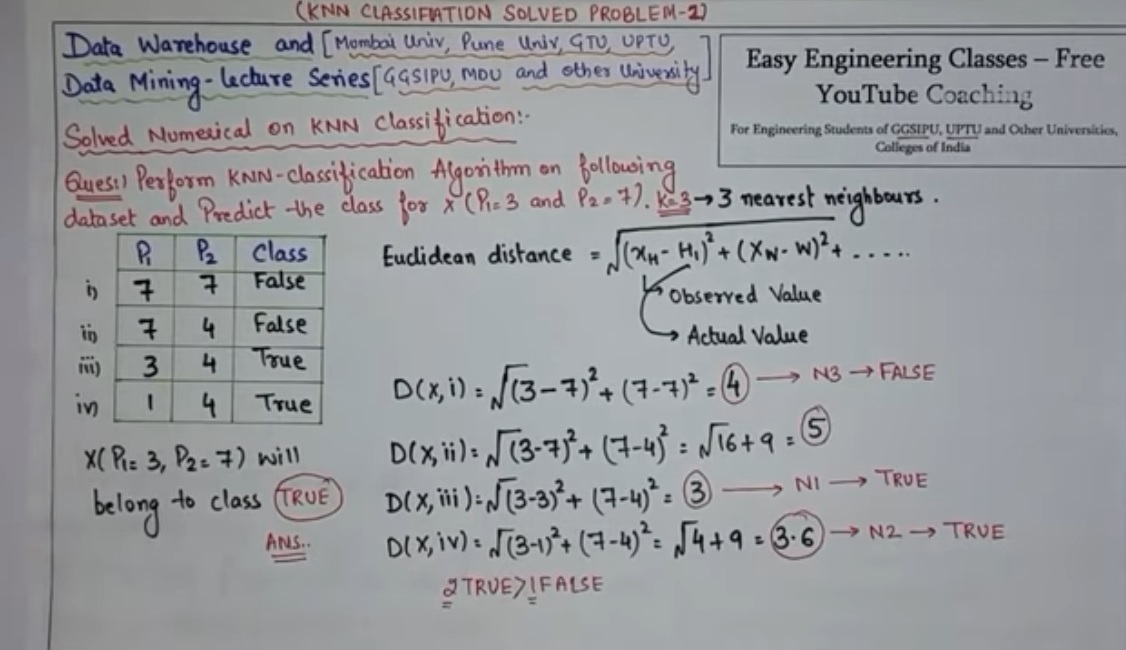 (KNN CLASSIFIATION SOLVED PROBLEM-2)
Data Warehouse and [Mombai Univ, Pune Univ, GTU, UPTU,
Data Mining-lecture Series [GGSIPU, MDU and other University]
Easy Engineering Classes – Free
YouTube Coaching
For Engineering Students of GGSIPU, UPTU and Other Universities,
Colleges of India
Solved Numerical on KNN Classification:-
Ques:) Perform KNN-classification Algorithm on following
dataset and Predict the class for X (P1=3 and P2=7). K=3 → 3 nearest neighbours.
P1 P2 Class
i) 7 7 False
ii) 7 4 False
iii) 3 4 True
iv) 1 4 True
Euclidean distance = √(XH-H1)²+(XW-W)²+.....
Observed Value
Actual Value
D(X,i) = √(3-7)²+(7-7)² = 4 → N3 → FALSE
D(X,ii) = √(3-7)²+(7-4)² = √16+9 = 5
D(X,iii) = √(3-3)²+(7-4)² = 3 → N1 → TRUE
D(X,iv) = √(3-1)²+(7-4)² = √4+9 = 3.6 → N2 → TRUE
2 TRUE > 1 FALSE
X(P1=3, P2=7) will
belong to class TRUE
ANS..